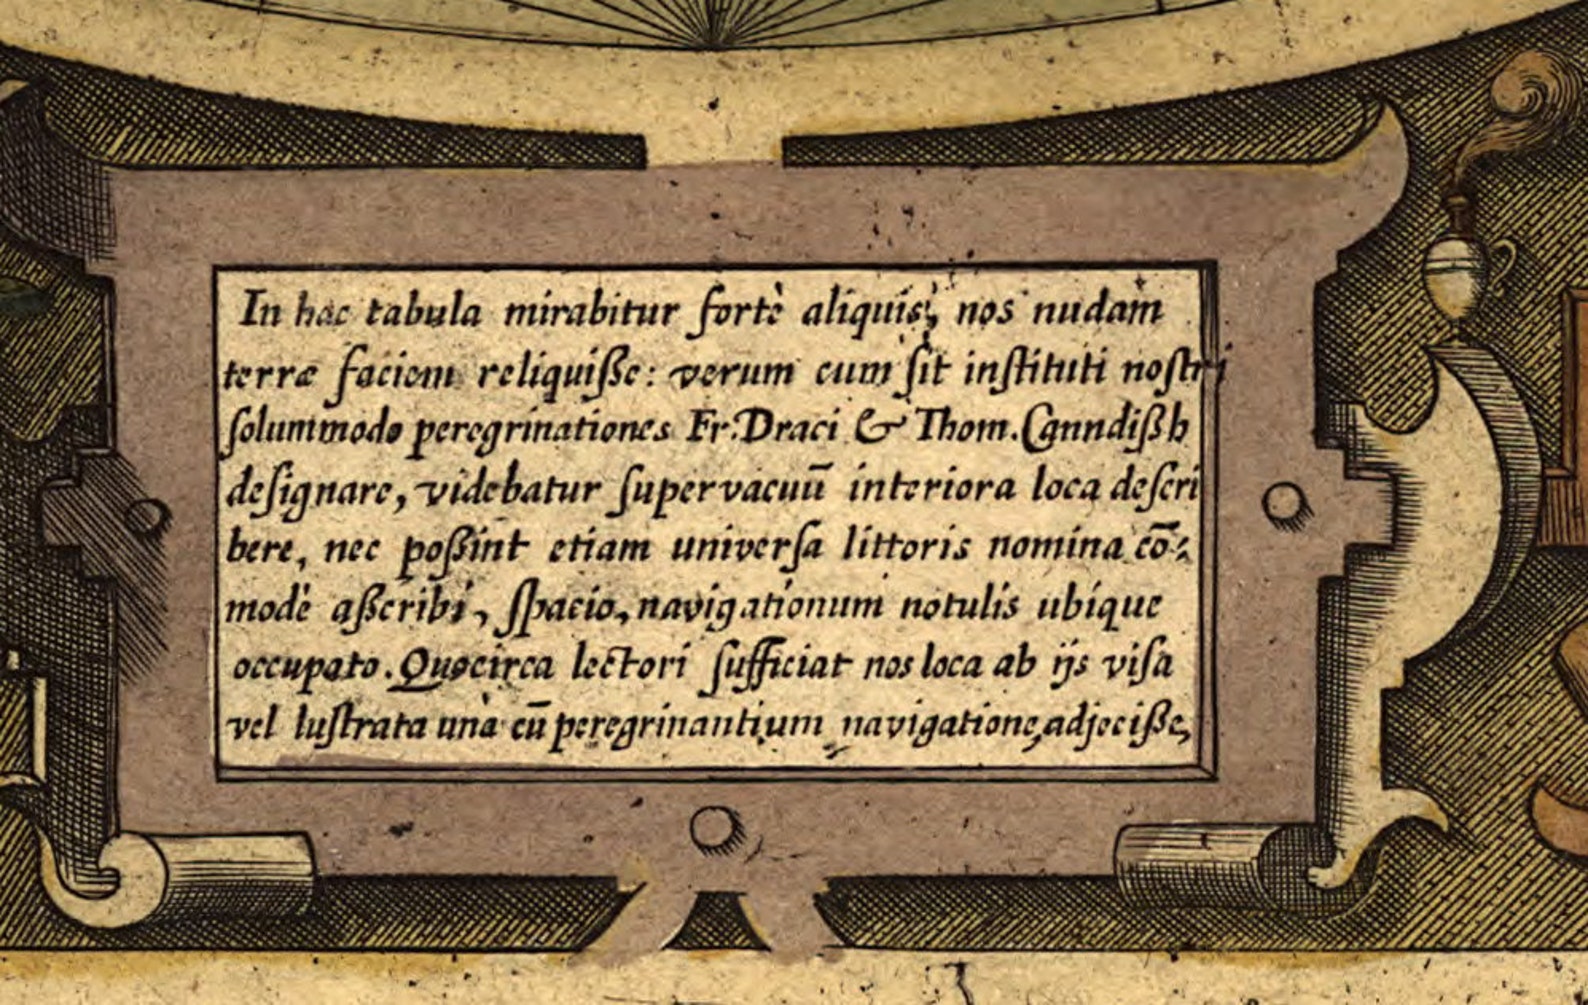 In hac tabula mirabitur fortè aliquis, nos nudam
terræ faciem reliquiße: verum cum ſit inſtituti noſtri
ſolummodo peregrinationes Fr. Draci & Thom. Canndißh
deſignare, videbatur ſupervacuū interiora loca deſcri
bere, nec poßint etiam univerſa littoris nomina cō⸗
modè aßcribi, ſpacio, navigationum notulis ubique
occupato. Quocirca lectori ſufficiat nos loca ab ijs viſa
vel luſtrata unà cū peregrinantium navigatione, adjeciße,